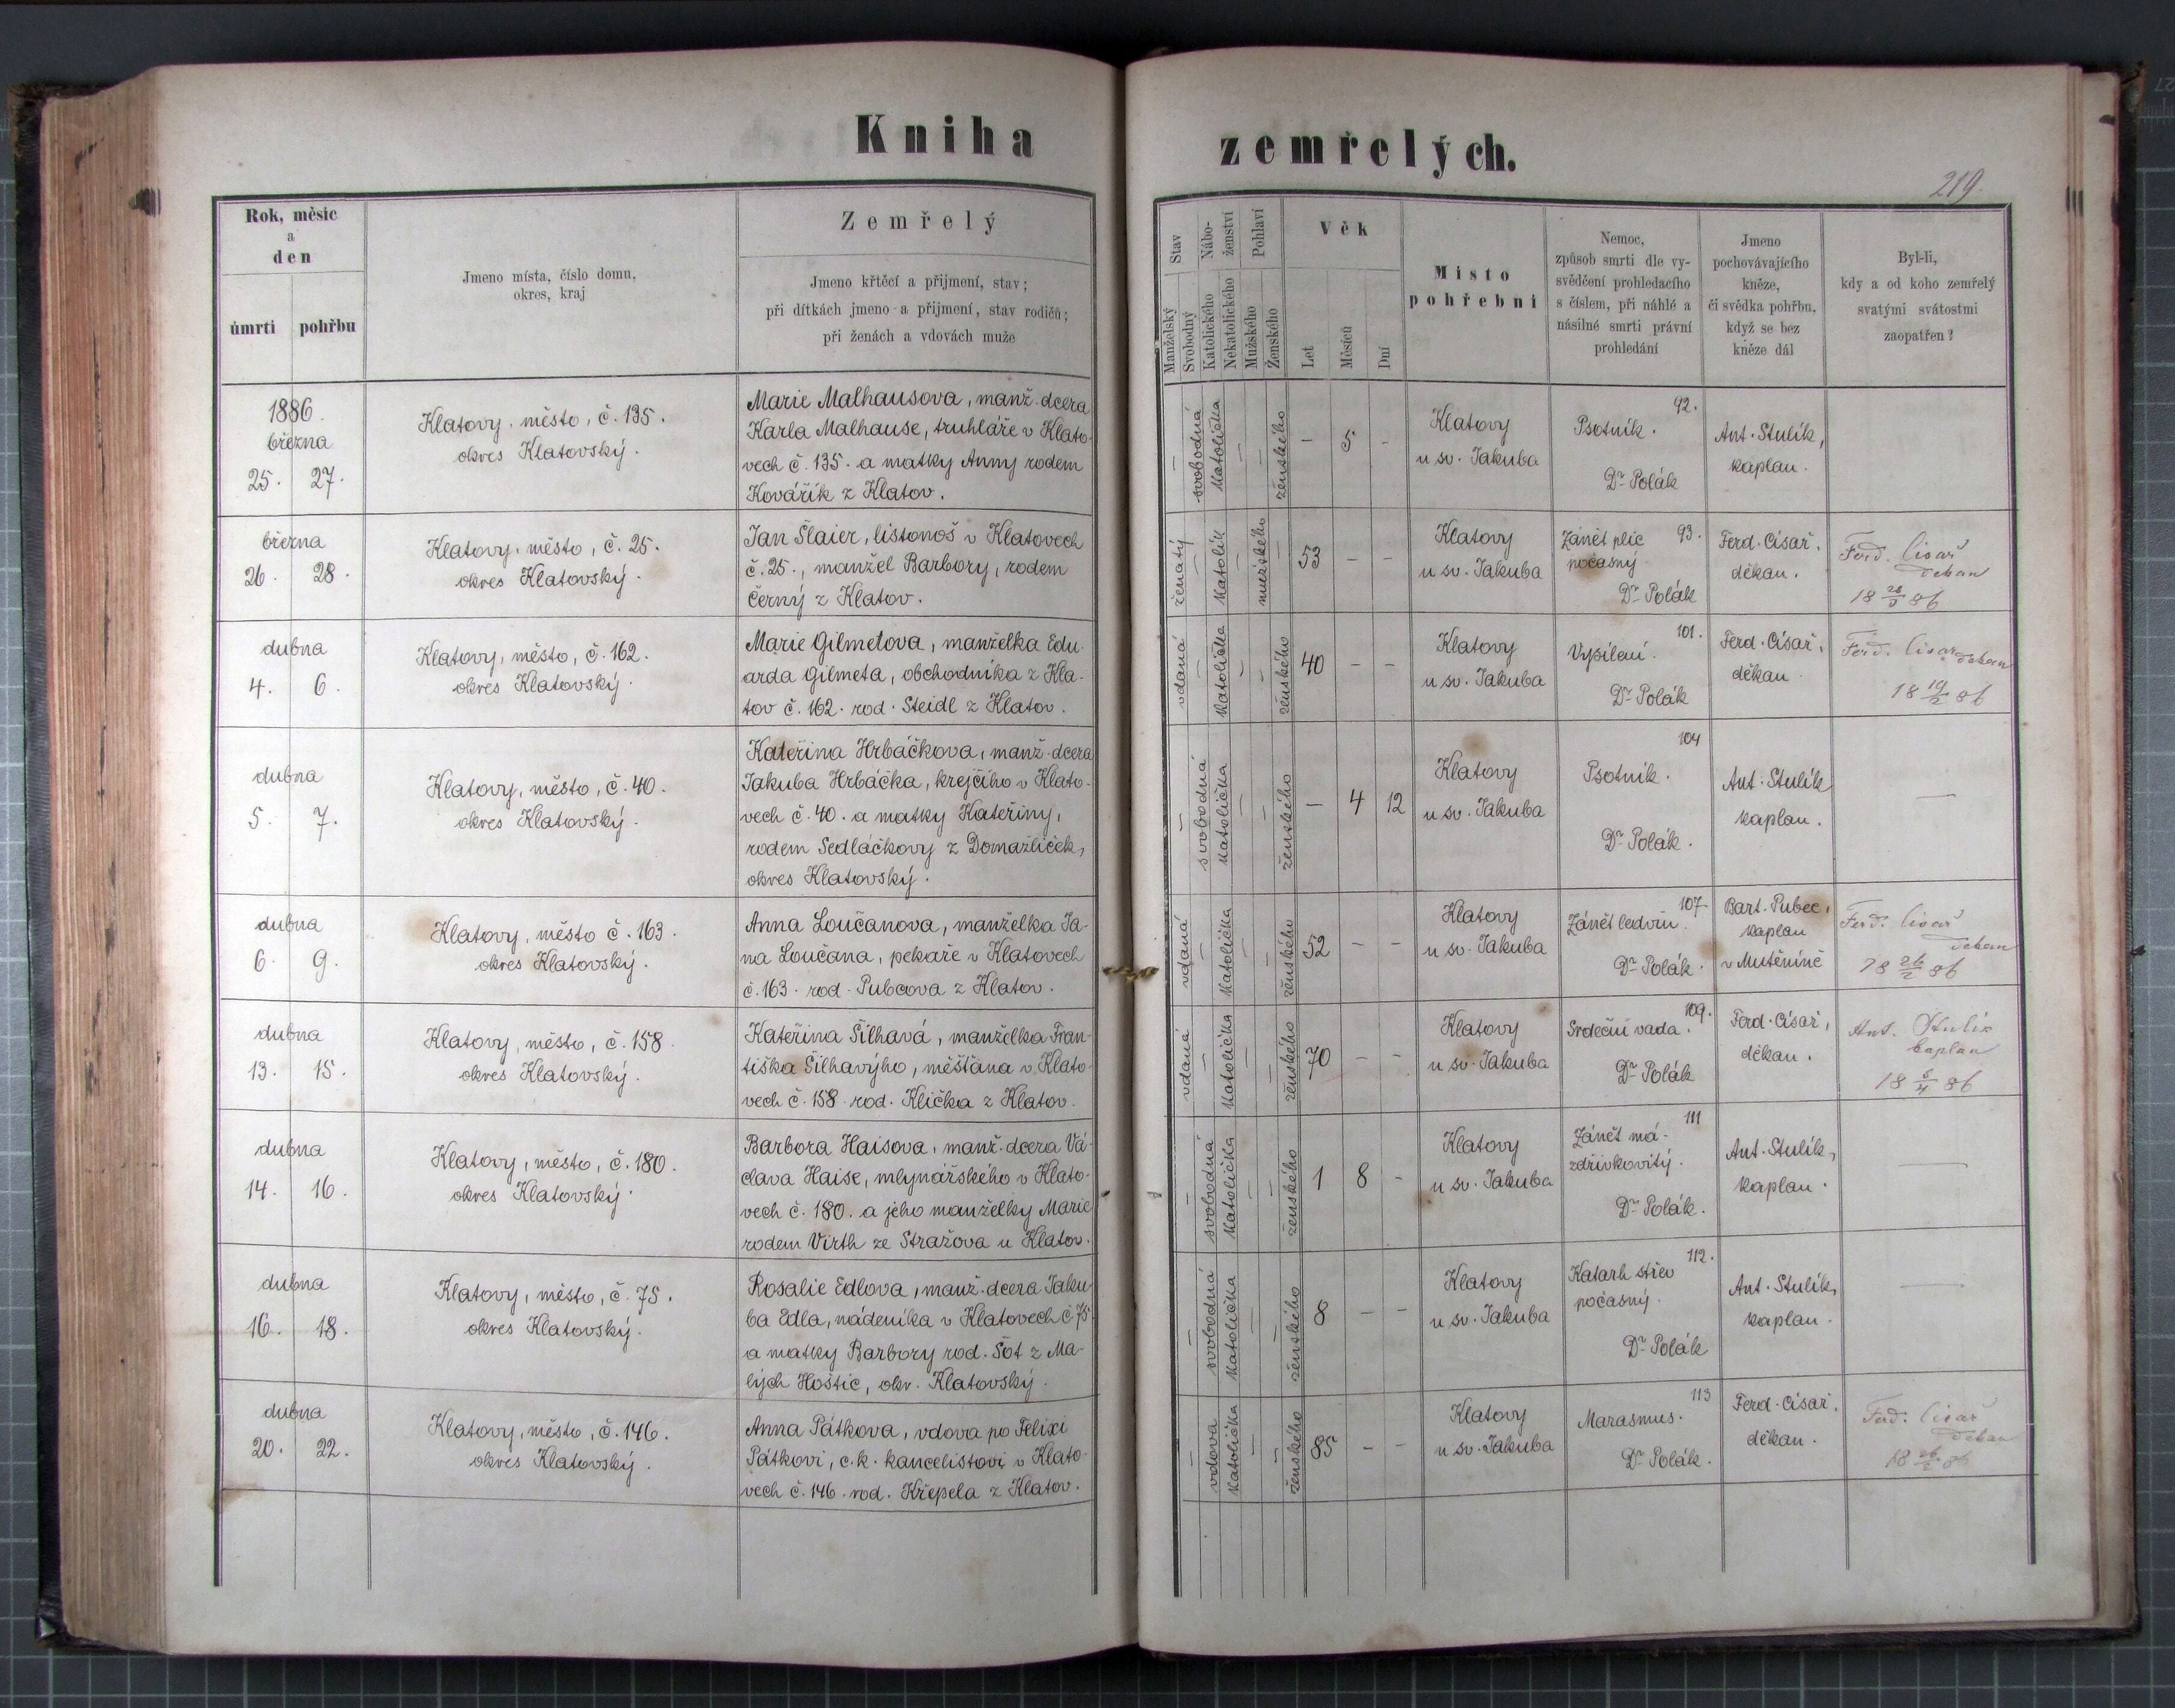 Kniha
zemřelých.
219.
Rok, měsíc
a
den
úmrtí
pohřbu
Jmeno místa, číslo domu,
okres, kraj
Zemřelý
Jmeno křtěcí a přijmení, stav;
při dítkách jmeno a přijmení, stav rodičů;
při ženách a vdovách muže
Stav
Manželský
Svobodný
Nábo-
ženství
Katolického
Nekatolického
Pohlaví
Mužského
Ženského
Věk
Let
Měsíců
Dní
Místo
pohřební
Nemoc,
způsob smrti dle vy-
svědčení prohledacího
s číslem, při náhlé a
násilné smrti právní
prohledání
Jmeno
pochovávajícího
kněze,
či svědka pohřbu,
když se bez
kněze dál
Byl-li,
kdy a od koho zemřelý
svatými svátostmi
zaopatřen?
1886.
března
25. 27.
Klatovy, město, č. 135.
okres Klatovský.
Marie Malhausova, manž. dcera
Karla Malhause, truhláře v Klato-
vech č. 135. a matky Anny rodem
Kovářík z Klatov.
– svobodná katolička – – ženského
– 5 –
Klatovy
u sv. Jakuba
92.
Psotník.
Dr Polák
Ant. Stulík,
kaplan.
března
26. 28.
Klatovy, město, č. 25.
okres Klatovský.
Jan Šlaier, listonoš v Klatovech
č. 25., manžel Barbory, rodem
Černý z Klatov.
ženatý – katolík – mužského
53 – –
Klatovy
u sv. Jakuba
Zánět plic 93.
počasný
Dr Polák
Ferd. Císař,
děkan.
Ferd. Císař
děkan
18 28/3 86
dubna
4. 6.
Klatovy, město, č. 162.
okres Klatovský.
Marie Gilmetova, manželka Edu-
arda Gilmeta, obchodníka z Kla-
tov č. 162. rod. Steidl z Klatov.
vdaná – katolička – – ženského
40 – –
Klatovy
u sv. Jakuba
101.
Vysílení.
Dr Polák
Ferd. Císař,
děkan
Ferd. Císař děkan
18 19/2 86
dubna
5. 7.
Klatovy, město, č. 40.
okres Klatovský.
Kateřina Hrbáčkova, manž. dcera
Jakuba Hrbáčka, krejčího v Klato-
vech č. 40. a matky Kateřiny,
rodem Sedláčkovy z Domažliček,
okres Klatovský.
– svobodná katolička – – ženského
– 4 12
Klatovy
u sv. Jakuba
104
Psotník.
Dr Polák.
Ant. Stulík
kaplan.
—
dubna
6. 9.
Klatovy, město č. 163.
okres Klatovský.
Anna Loučanova, manželka Ja-
na Loučana, pekaře v Klatovech
č. 163. rod. Pubcova z Klatov.
vdaná – katolička – – ženského
52 – –
Klatovy
u sv. Jakuba
107.
Zánět ledvin.
Dr Polák.
Bart. Pubec,
kaplan
v Mutěníně
Ferd. Císař
děkan
18 26/2 86
dubna
13. 15.
Klatovy, město, č. 158.
okres Klatovský.
Kateřina Šilhavá, manželka Fran-
tiška Šilhavýho, měšťana v Klato-
vech č. 158 rod. Klička z Klatov.
vdaná – katolička – – ženského
70 – –
Klatovy
u sv. Jakuba
109.
Srdeční vada.
Dr Polák
Ferd. Císař,
děkan.
Ant. Stulík
kaplan
18 5/4 86
dubna
14. 16.
Klatovy, město, č. 180.
okres Klatovský.
Barbora Haisova, manž. dcera Vá-
clava Haise, mlynářského v Klato-
vech č. 180. a jeho manželky Marie
rodem Virth ze Stražova u Klatov.
– svobodná katolička – – ženského
1 8 –
Klatovy
u sv. Jakuba
111
Zánět má-
zdřivkovitý.
Dr Polák.
Ant. Stulík,
kaplan.
—
dubna
16. 18.
Klatovy, město, č. 75.
okres Klatovský.
Rosalie Edlova, manž. dcera Jaku-
ba Edla, nádeníka v Klatovech č. 75.
a matky Barbory rod. Šot z Ma-
lých Hoštic, okr. Klatovský.
– svobodná katolička – – ženského
8 – –
Klatovy
u sv. Jakuba
112.
Katarh střev
počasný.
Dr Polák
Ant. Stulík,
kaplan.
—
dubna
20. 22.
Klatovy, město, č. 146.
okres Klatovský.
Anna Pátkova, vdova po Felixi
Pátkovi, c. k. kancelistovi v Klato-
vech č. 146. rod. Křepela z Klatov.
– vdova katolička – – ženského
85 – –
Klatovy
u sv. Jakuba
113
Marasmus.
Dr Polák.
Ferd. Císař,
děkan.
Ferd. Císař
děkan